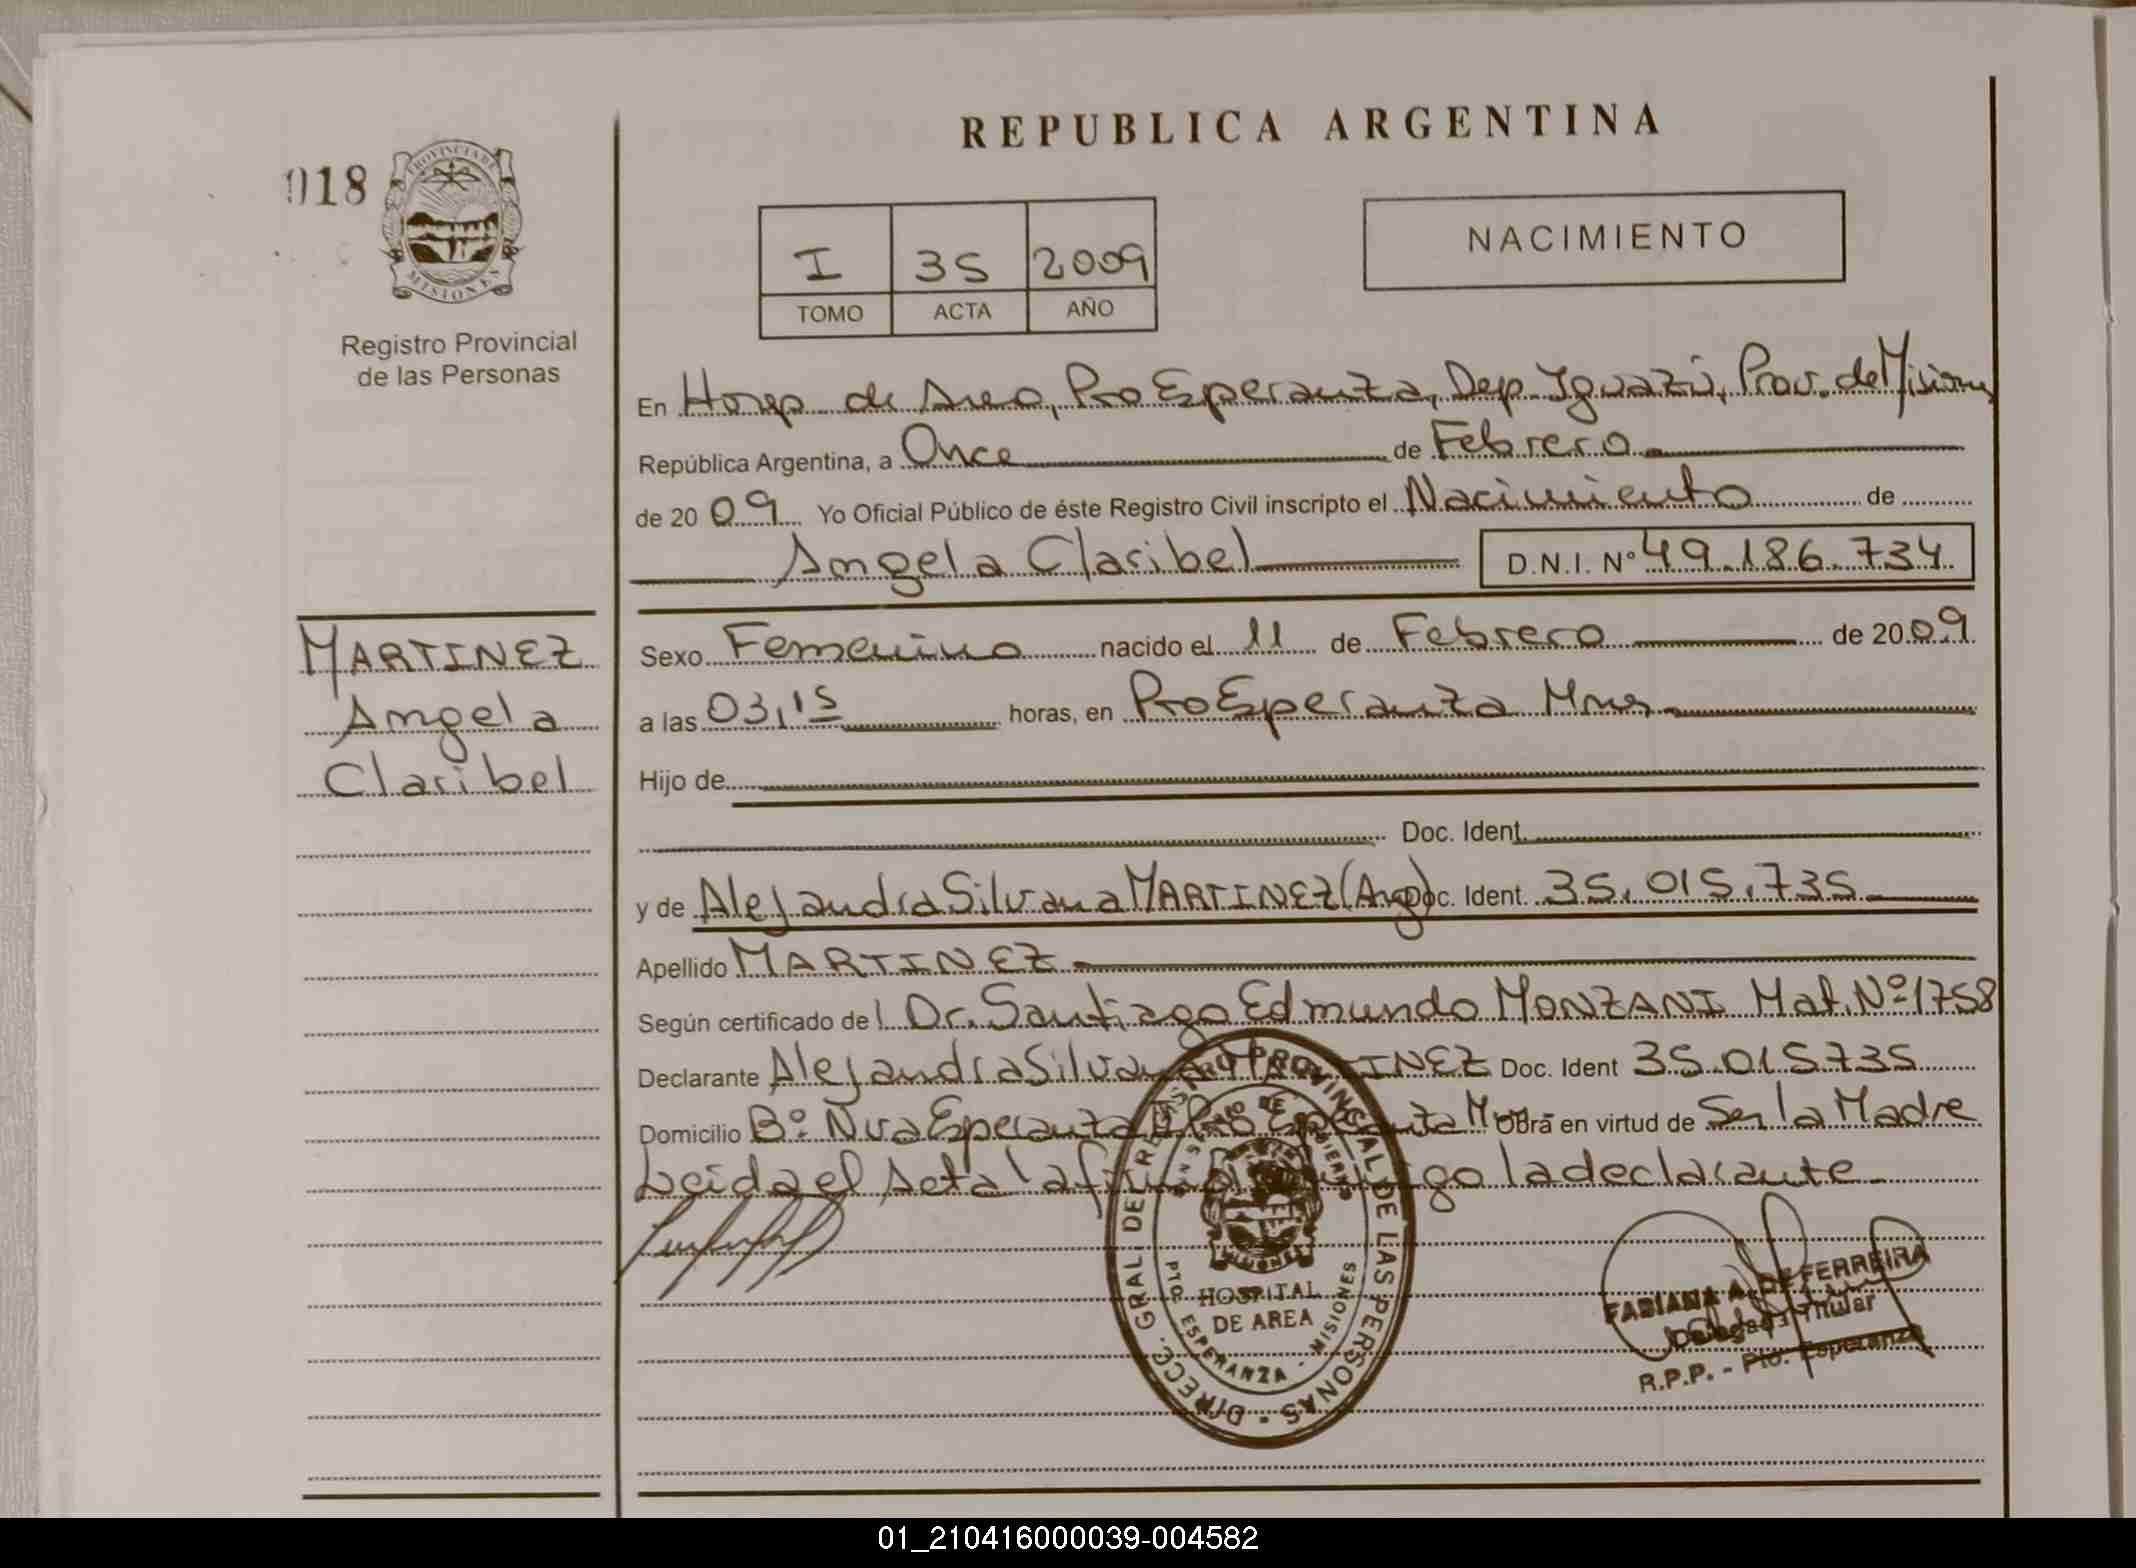 REPUBLICA ARGENTINA
018
PROVINCIA DE
MISIONES
Registro Provincial
de las Personas
I 35 2009
TOMO ACTA AÑO
NACIMIENTO
En Hosp de Area, Pto Esperanza, Dep. Iguazú, Prov. de Misiones
República Argentina, a Once de Febrero
de 2009 Yo Oficial Público de éste Registro Civil inscripto el Nacimiento de
Angela Claribel D.N.I. Nº 49.186.734
MARTINEZ
Angela
Claribel
Sexo Femenino nacido el 11 de Febrero de 2009
a las 03,15 horas, en Pto Esperanza Mnes.
Hijo de
Doc. Ident.
y de Alejandra Silvana MARTINEZ (Arg) Doc. Ident. 35.015.735
Apellido MARTINEZ
Según certificado del Dr. Santiago Edmundo MONZANI Mat. Nº 1758
Declarante Alejandra Silvana MARTINEZ Doc. Ident 35.015735
Domicilio Bº Nva Esperanza Pto Esperanza Obra en virtud de Ser la Madre
Leida el Acta la firma conmigo la declarante
DIRECC. GRAL. DE REGISTRO PROVINCIAL DE LAS PERSONAS
HOSPITAL
DE AREA
PTO. ESPERANZA - MISIONES
FABIANA A. DE FERREIRA
Delegada Titular
R.P.P. - Pto. Esperanza
01_210416000039-004582